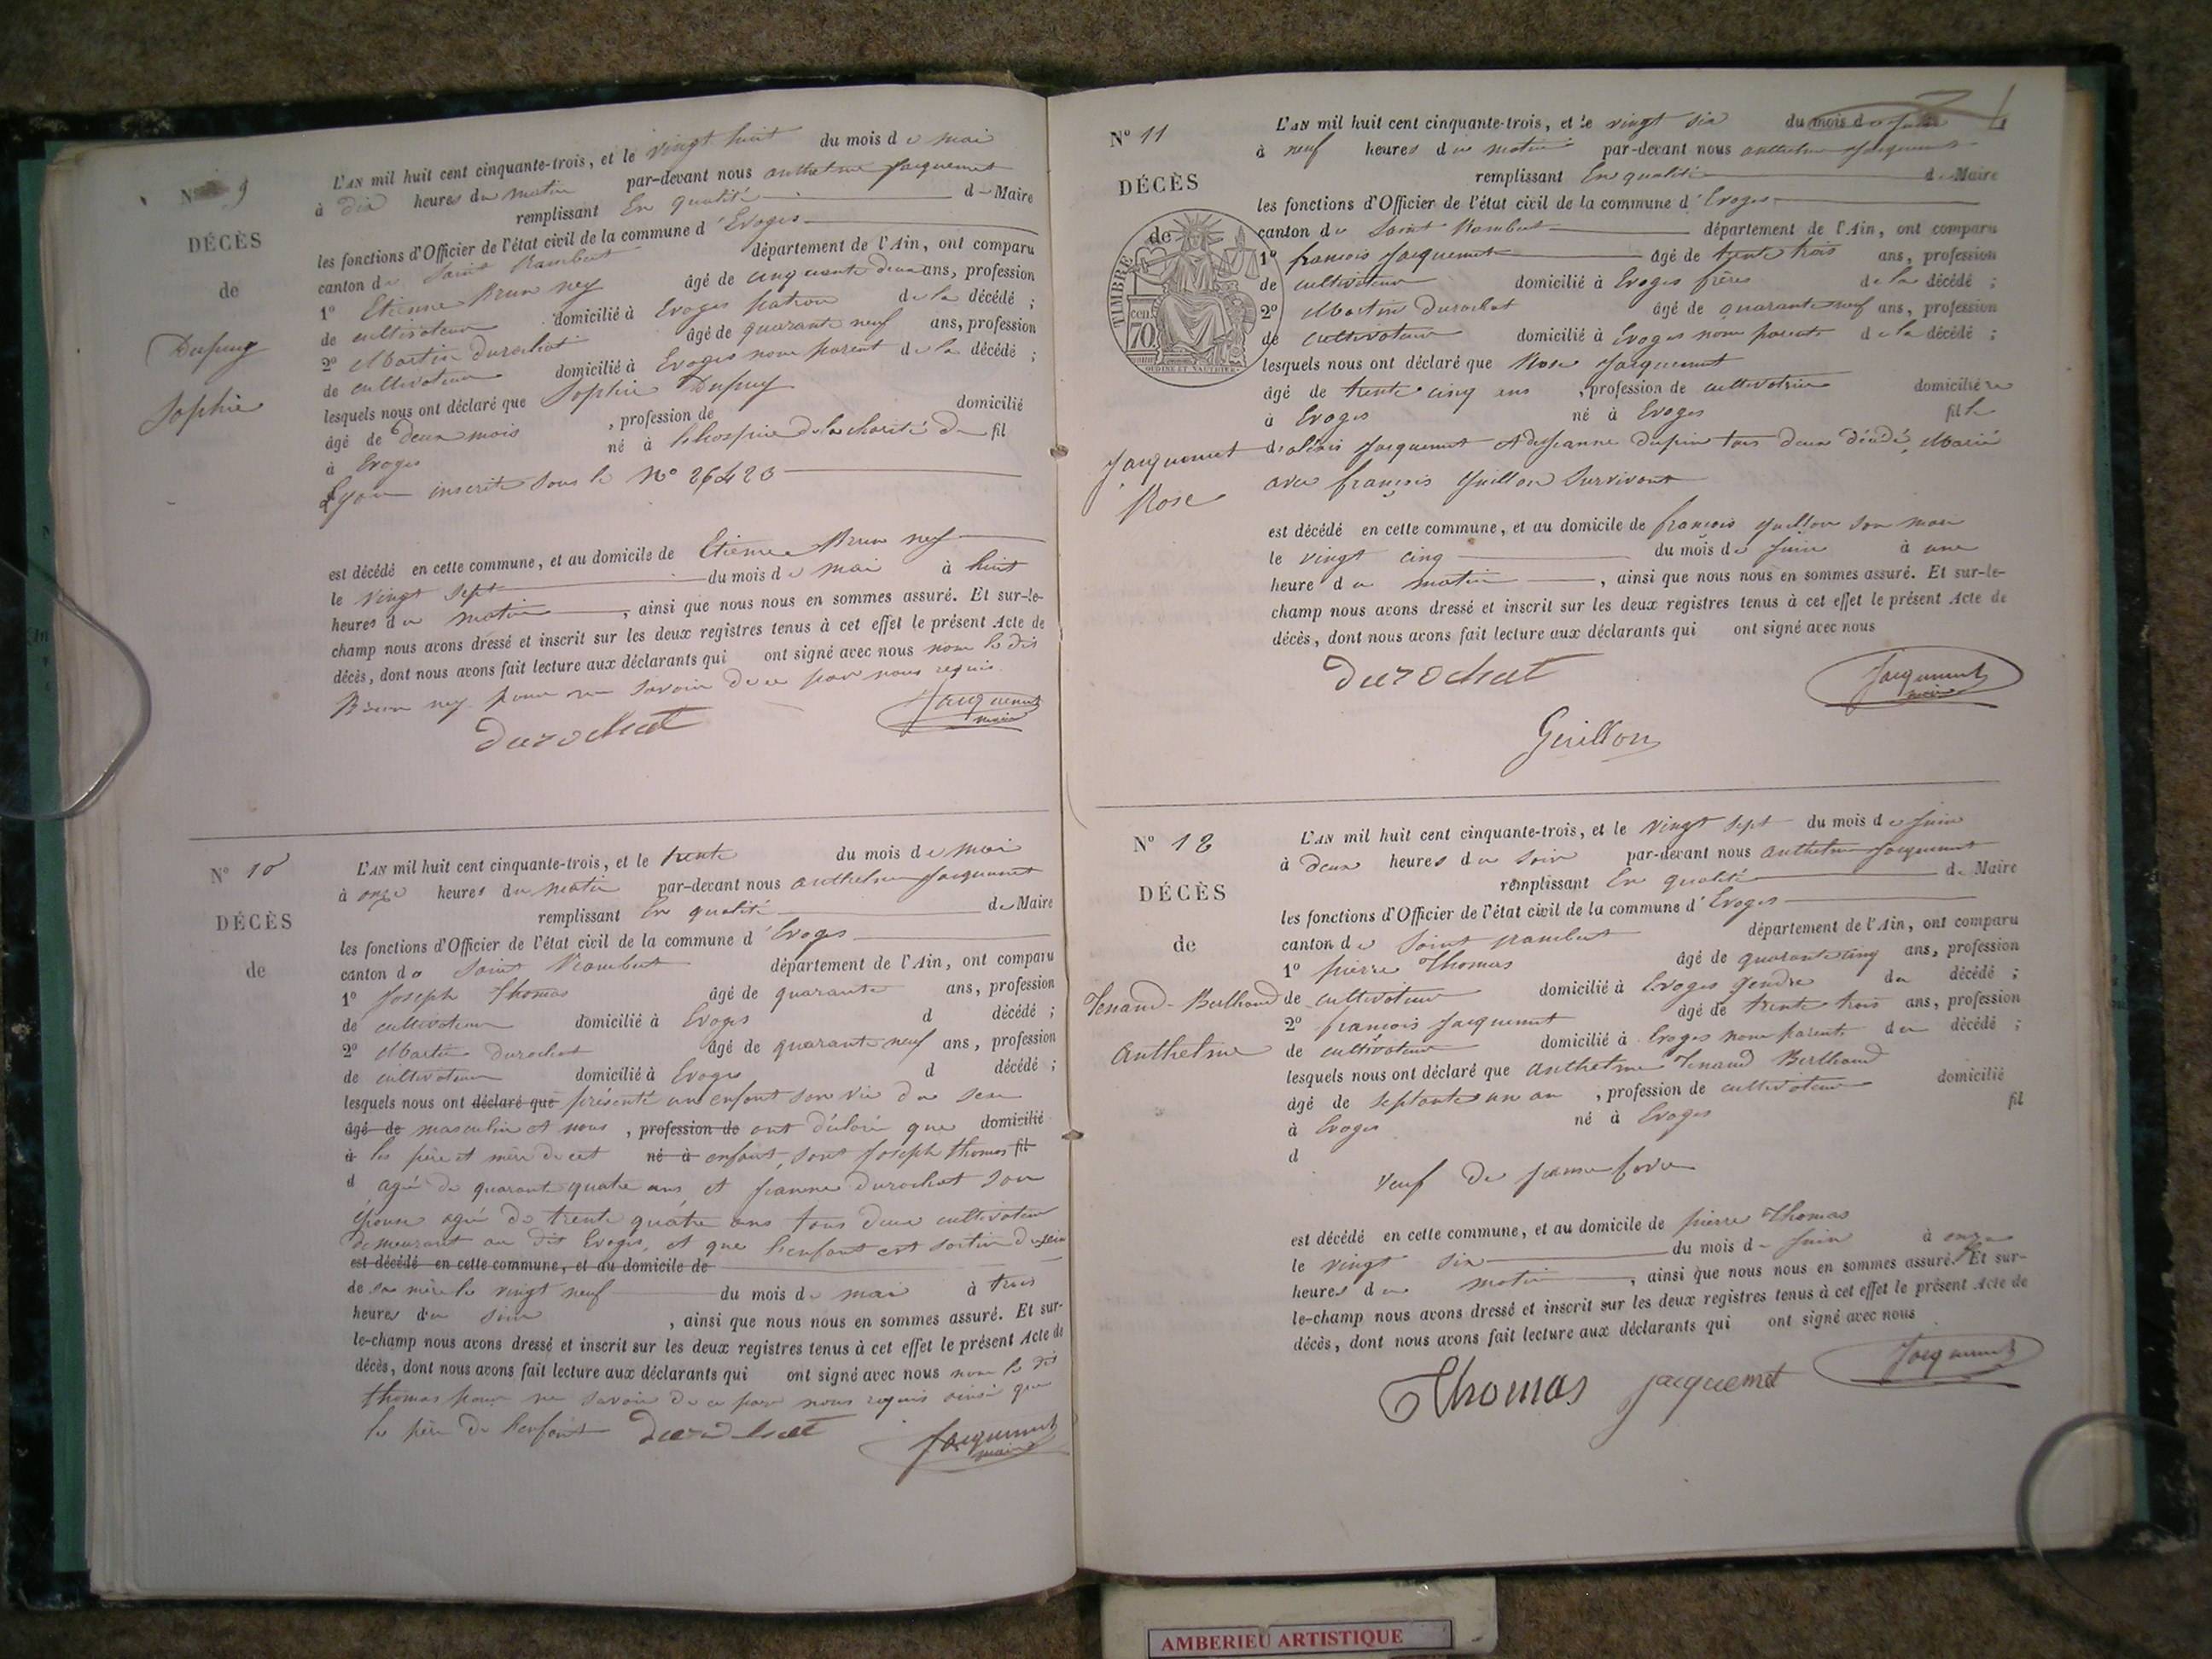 N° 9
DÉCÈS
de
Dupuy
Sophie
L'AN mil huit cent cinquante-trois, et le vingt huit du mois de mai
à dix heures du matin par-devant nous anthelme Jacquemet
remplissant En qualité de Maire
les fonctions d'Officier de l'état civil de la commune d'Evoges
canton de Saint Rambert département de l'Ain, ont comparu
1° Etienne Brun ney âgé de cinquante deux ans, profession
de cultivateur domicilié à Evoges de la décédé ;
2° Martin Durochat âgé de quarante neuf ans, profession
de cultivateur domicilié à Evoges non parent de la décédé ;
lesquels nous ont déclaré que Sophie Dupuy
âgé de deux mois , profession de domicilié
à Evoges né à l'hospice de la charité de fil
Lyon inscrite sous le N° 26423
est décédé en cette commune, et au domicile de Etienne Brun ney
le vingt sept du mois de mai à huit
heures du matin , ainsi que nous nous en sommes assuré. Et sur-le-
champ nous avons dressé et inscrit sur les deux registres tenus à cet effet le présent Acte de
décès, dont nous avons fait lecture aux déclarants qui ont signé avec nous non le dit
Brun ney pour ne savoir de ce par nous requis
Durochat Jacquemet maire
N° 10
DÉCÈS
de
L'AN mil huit cent cinquante-trois, et le trente du mois de mai
à onze heures du matin par-devant nous anthelme Jacquemet
remplissant En qualité de Maire
les fonctions d'Officier de l'état civil de la commune d'Evoges
canton de Saint Rambert département de l'Ain, ont comparu
1° Joseph Thomas âgé de quarante ans, profession
de cultivateur domicilié à Evoges d décédé ;
2° Martin Durochat âgé de quarante neuf ans, profession
de cultivateur domicilié à Evoges d décédé ;
lesquels nous ont déclaré que présenté un enfant san vie du sexe
âgé de masculin et nous , profession de ont déclaré que domicilié
à les père et mère de cet né à enfant, sont Joseph thomas fil
d agé de quarante quatre ans et Jeanne Durochat son
épouse agée de trente quatre ans tous deux cultivateur
demeurant au dit Evoges, et que l'enfant est sortie du sein
est décédé en cette commune, et au domicile de
de sa mère le vingt neuf du mois de mai à trois
heures du soir , ainsi que nous nous en sommes assuré. Et sur-
le-champ nous avons dressé et inscrit sur les deux registres tenus à cet effet le présent Acte de
décès, dont nous avons fait lecture aux déclarants qui ont signé avec nous non le dit
thomas pour ne savoir de ce par nous requis ainsi que
le père de l'enfant Durochat Jacquemet maire
N° 11
DÉCÈS
de
TIMBRE
cen. 70
OUDINÉ ET VAUTHIER
Jacquemet
Rose
L'AN mil huit cent cinquante-trois, et le vingt six du mois de juin
à neuf heures du matin par-devant nous anthelme Jacquemet
remplissant En qualité de Maire
les fonctions d'Officier de l'état civil de la commune d'Evoges
canton de Saint Rambert département de l'Ain, ont comparu
1° françois Jacquemet âgé de trente trois ans, profession
de cultivateur domicilié à Evoges frères de la décédé ;
2° Martin Durochat âgé de quarante neuf ans, profession
de cultivateur domicilié à Evoges non parents de la décédé ;
lesquels nous ont déclaré que Rose Jacquemet
âgé de trente cinq ans , profession de cultivatrice domiciliée
à Evoges né à Evoges fille
d'aléxis Jacquemet et de Jeanne dupin tous deux décédé, Marié
avec françois Guillon Survivant
est décédé en cette commune, et au domicile de françois Guillon son mari
le vingt cinq du mois de juin à une
heure du matin , ainsi que nous nous en sommes assuré. Et sur-le-
champ nous avons dressé et inscrit sur les deux registres tenus à cet effet le présent Acte de
décès, dont nous avons fait lecture aux déclarants qui ont signé avec nous
Durochat Jacquemet maire
Guillon
N° 12
DÉCÈS
de
Tenand-Berthand
Anthelme
L'AN mil huit cent cinquante-trois, et le vingt sept du mois de juin
à deux heures du soir par-devant nous anthelme Jacquemet
remplissant En qualité de Maire
les fonctions d'Officier de l'état civil de la commune d'Evoges
canton de Saint Rambert département de l'Ain, ont comparu
1° pierre Thomas âgé de quarante cinq ans, profession
de cultivateur domicilié à Evoges gendre du décédé ;
2° françois Jacquemet âgé de trente trois ans, profession
de cultivateur domicilié à Evoges non parents du décédé ;
lesquels nous ont déclaré que Anthelme Tenand Berthand
âgé de septante un an , profession de cultivateur domicilié
à Evoges né à Evoges fil
d
veuf de Jeanne
est décédé en cette commune, et au domicile de pierre Thomas
le vingt six du mois de juin à onze
heures du matin , ainsi que nous nous en sommes assuré. Et sur-
le-champ nous avons dressé et inscrit sur les deux registres tenus à cet effet le présent Acte de
décès, dont nous avons fait lecture aux déclarants qui ont signé avec nous
Thomas Jacquemet Jacquemet
AMBERIEU ARTISTIQUE